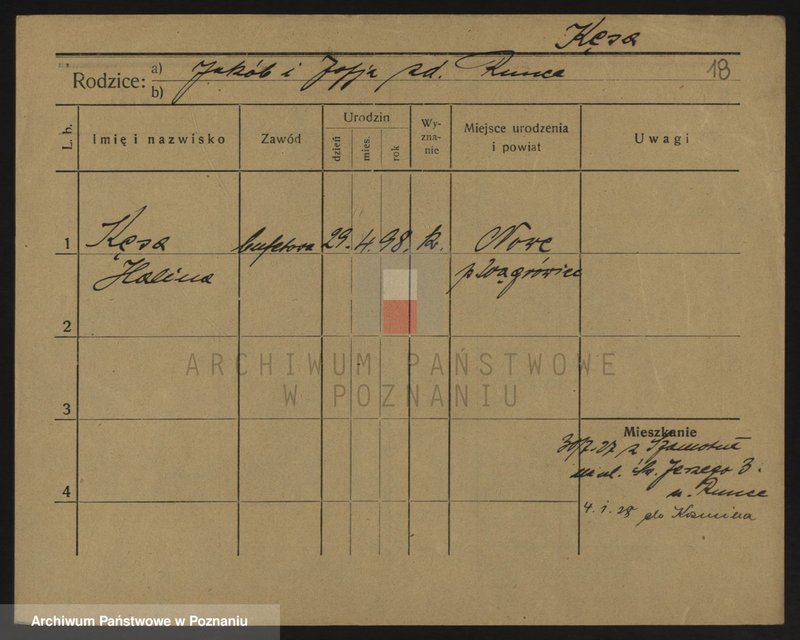 Kęsa
Rodzice: a) Jakób i Zofja zd. Runca
b)
18
L. b.
Imię i nazwisko
Zawód
Urodzin
dzień
mies.
rok
Wy-
zna-
nie
Miejsce urodzenia
i powiat
Uwagi
1 Kęsa bufetowa 29. 4. 98. k. Nowe
Halina p Wągrówiec
2
ARCHIWUM PAŃSTWOWE
W POZNANIU
3
Mieszkanie
30/7.27 z Szamotuł
na ul. Św. Jerzego 3.
4
4. 1. 28 do
Archiwum Państwowe w Poznaniu